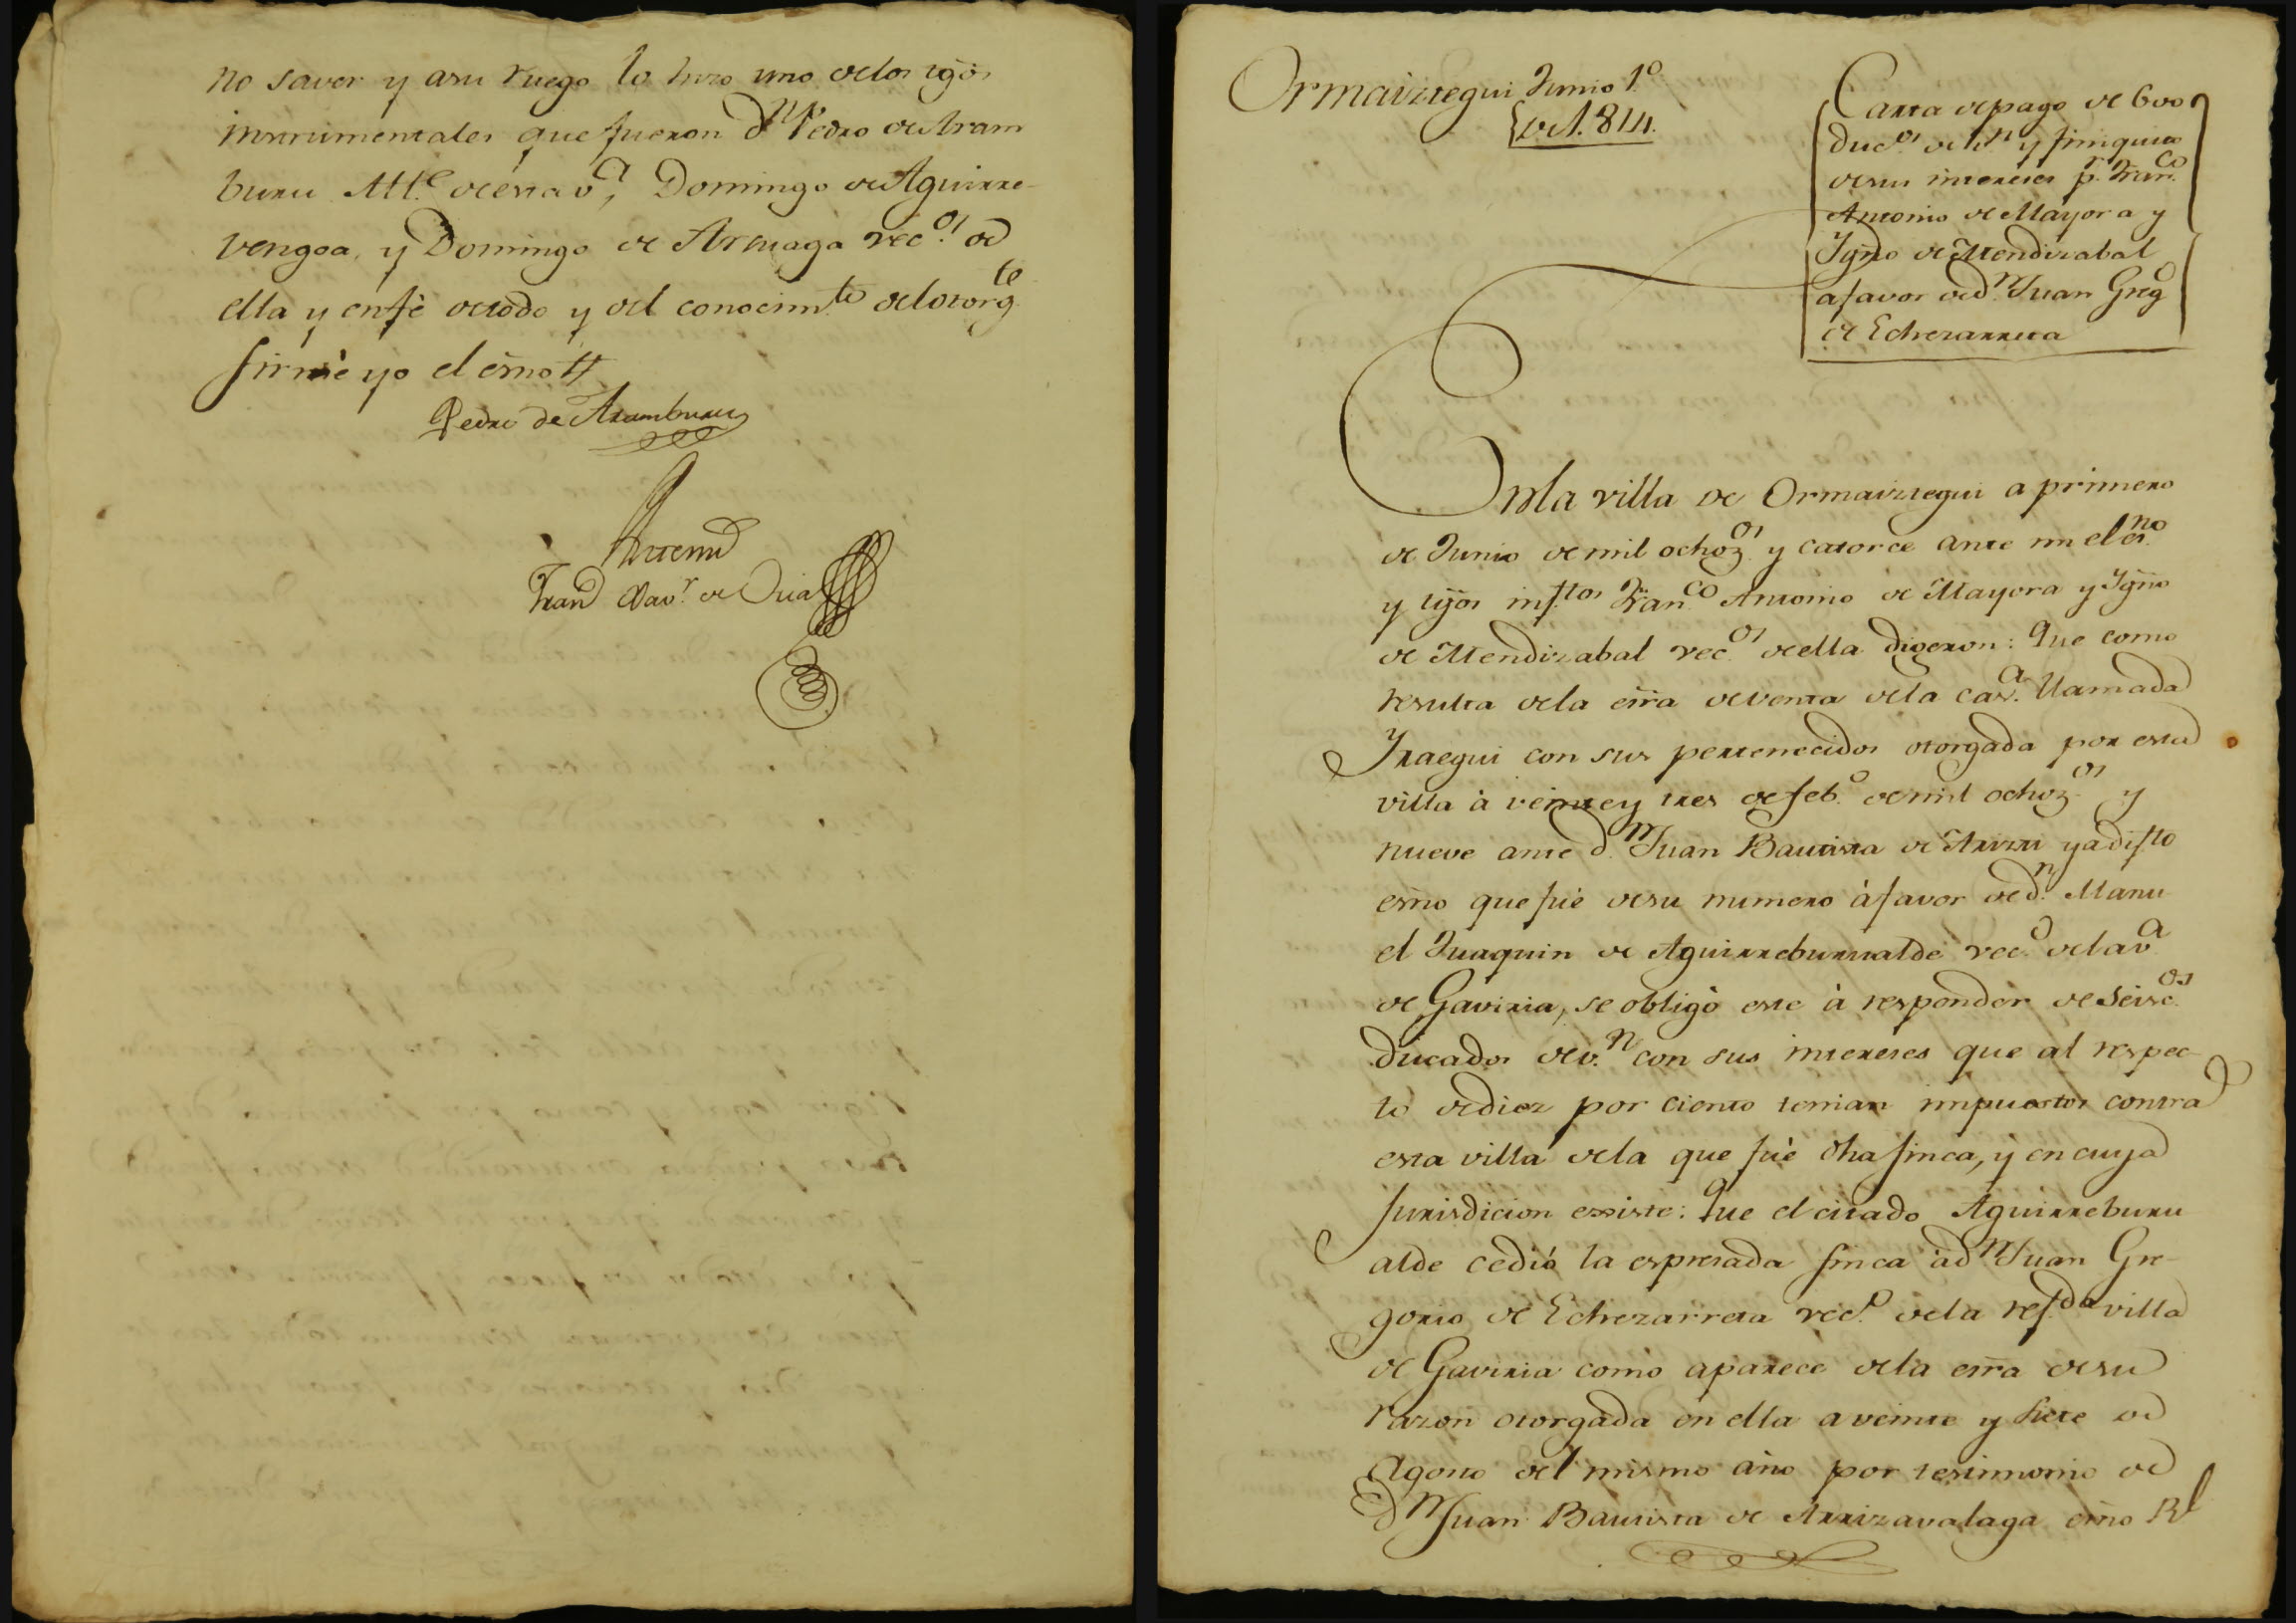 no saver y asu ruego lo hizo uno delos tgõs
instrumentales que fueron dⁿ Pedro de Aram
buru Alle. de esta vª, Domingo de Aguirre-
vengoa, y Domingo de Arsuaga vecᵒˢ de
ella y enfè de todo y del conocimᵗᵒ delotorgᵗᵉ
firmè yo el esño //
Pedro de Aramburu
Antemi
Franᶜᵒ Xavʳ de Oria
Ormaiztegui Junio 1º
de 1.814.
Carta depago de 600
ducᵒˢ de vⁿ y finiquito
desus intereses pʳ Franᶜᵒ
Antonio de Mayora y
Ygñō de Mendizabal
afavor de dⁿ Juan Gregᵒ
de Echezarreta
Enla villa de Ormaiztegui a primero
de Junio de mil ochozᵒˢ y catorce ante mi el esⁿᵒ
y tgõs infᵗᵒˢ Franᶜᵒ Antonio de Mayora y Ygñō
de Mendizabal vecᵒˢ de ella digeron: Que como
resulta dela esrra deventa dela casª llamada
Yraegui con sus pertenecidos otorgada por esta
villa à veinte y tres de febᵒ de mil ochozᵒˢ y
nueve ante dⁿ Juan Bautista de Arizti ya difᵗᵒ
esño que fuè desu numero àfavor de dⁿ Manu
el Juaquin de Aguirreburualde vecᵒ dela vª
de Gaviria, se obligò este à responder de seiscᵒˢ
ducados de vⁿ con sus intereses que al respec-
to de diez por ciento tenian impuestos contra
esta villa dela que fuè dha finca, y en cuya
jurisdicion existe: Que el citado Aguirreburu
alde cediò la espresada finca à dⁿ Juan Gre-
gorio de Echezarreta vecᵒ dela refᵈᵃ villa
de Gaviria como aparece dela esrra desu
razon otorgada en ella a veinte y siete de
Agosto del mismo año por testimonio de
dⁿ Juan Bautista de Arrizavalaga esño Rˡ